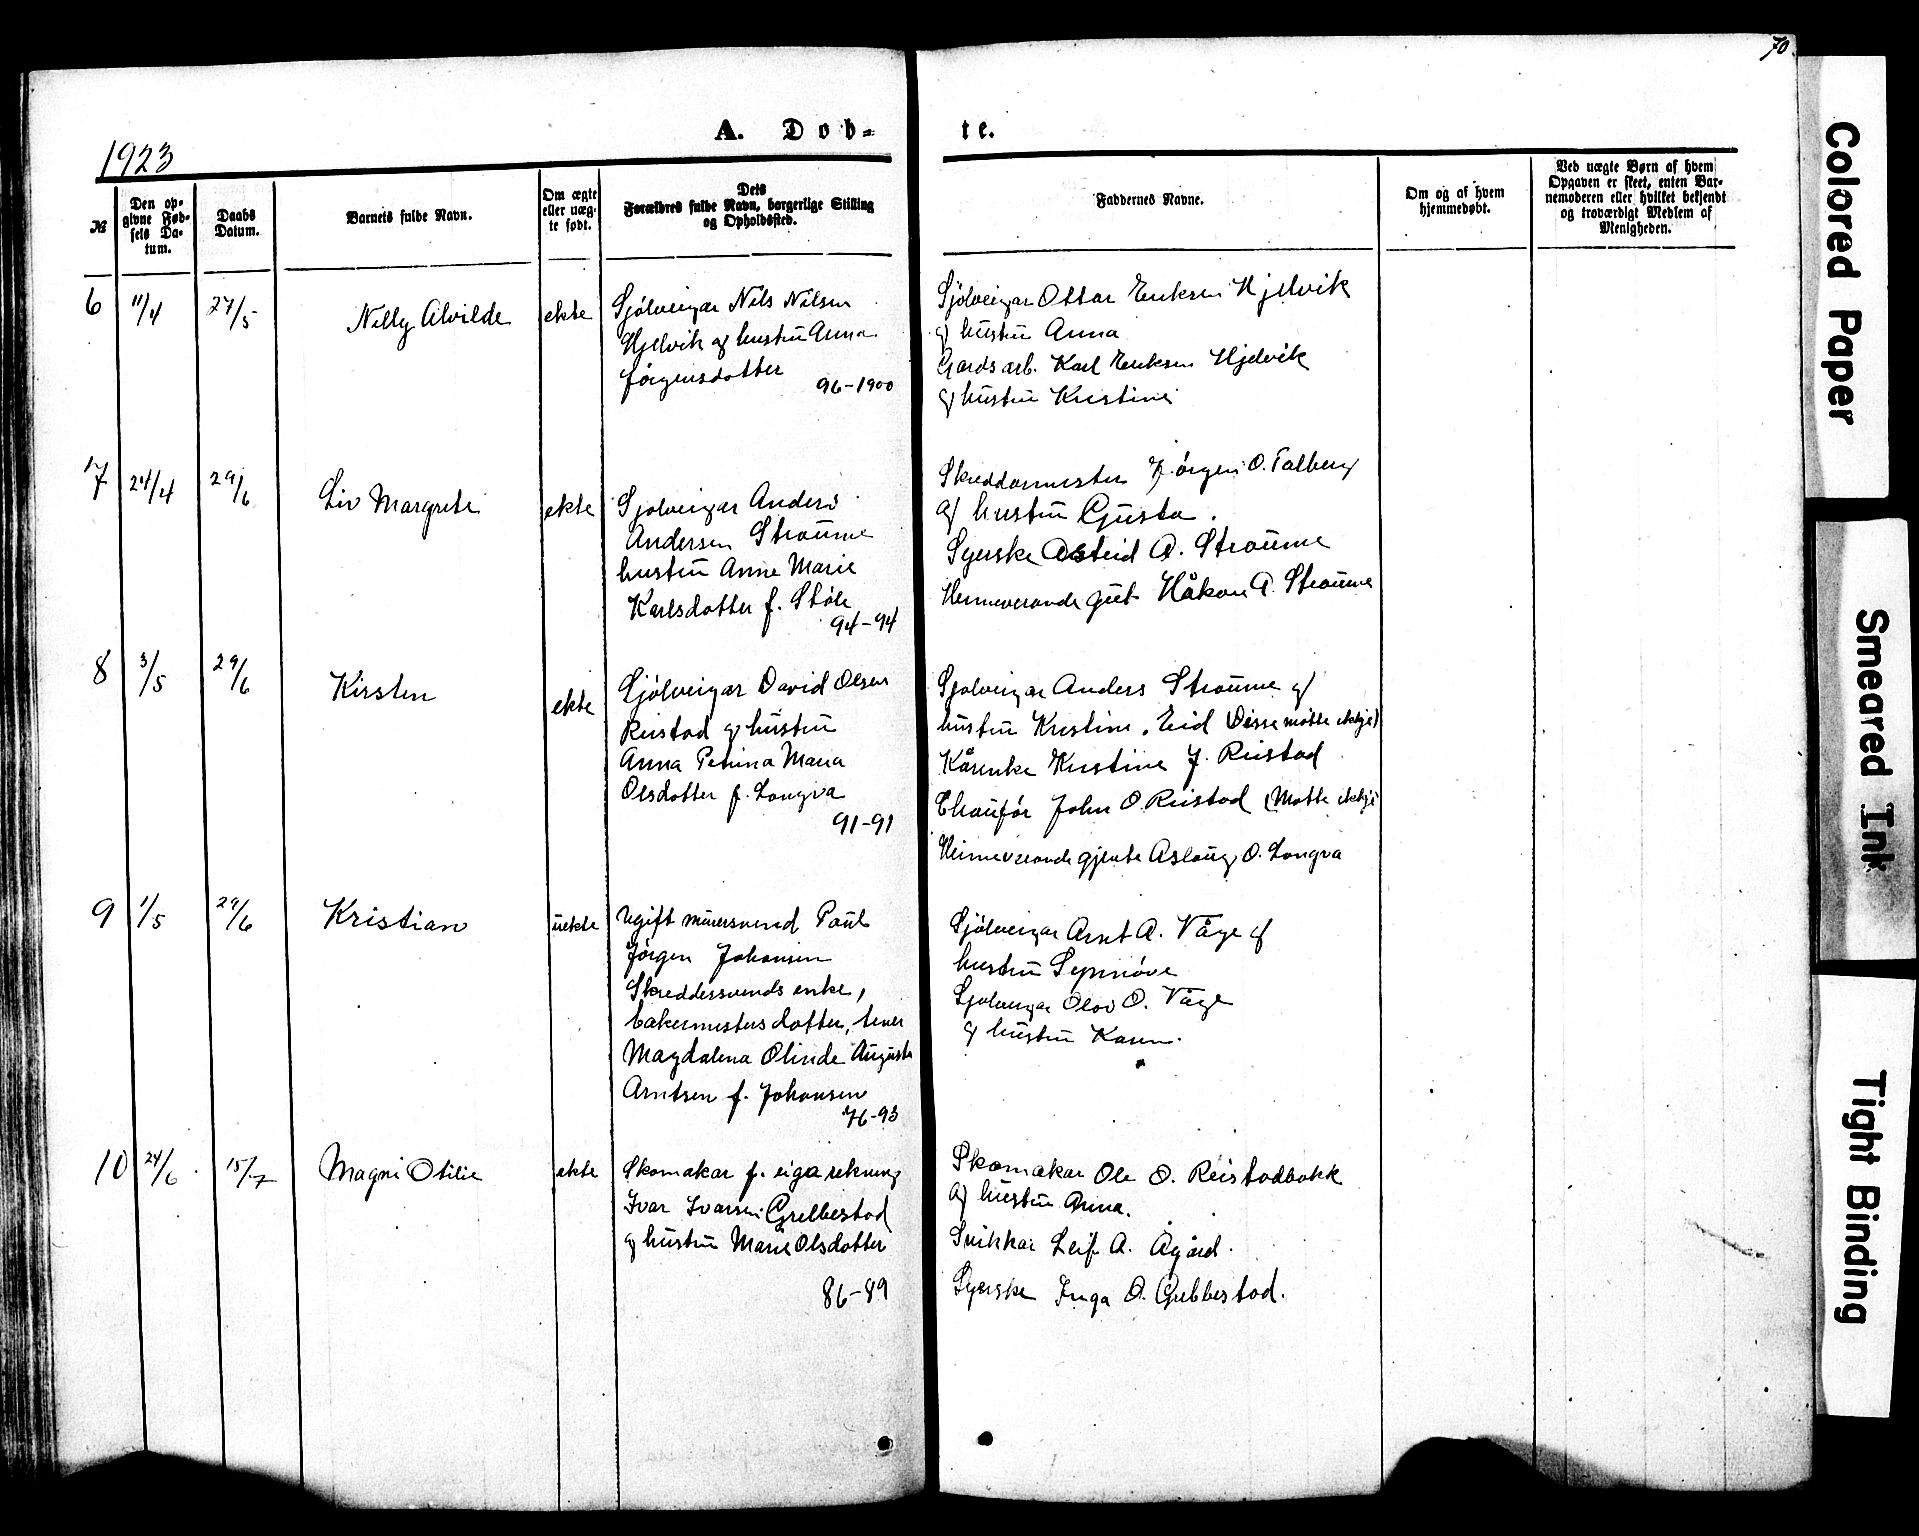 70
A. Døb-
te.
1923
№
Den op-
givne Fød-
sels Da-
tum.
Daabs
Datum.
Barnets fulde Navn.
Om ægte
eller uæg-
te født.
Dets
Forældres fulde Navn, borgerlige Stilling
og Opholdssted.
Faddernes Navne.
Om og af hvem
hjemmedøbt.
Ved uægte Børn af hvem
Opgaven er skeet, enten Bar-
nemoderen eller hvilket bekjendt
og troværdigt Medlem af
Menigheden.
6 11/4 27/5 Nelly Alvilde ekte
Sjölveigar Nils Nilsen
Hjelvik og hustru Anna
Jörgensdotter
96-1900
Sjölveigar Ottar Eriksen Hjelvik
og hustru Anna
Gardsarb. Karl Eriksen Hjelvik
og hustru Kristine
7 24/4 29/6 Liv Margrete ekte
Sjølveigar Anders
Andersen Straume
hustru Anne Marie
Karlsdotter f. Støle
94-94
Skreddarmester Jörgen O. Talberg
og hustru Gusta.
Syerske Astrid A. Straume
Heimeverande gut Håkon A. Straume
8 3/5 29/6 Kirsten ekte
Sjölveigar David Olsen
Reistad og hustru
Anna Petrina Maria
Olsdotter f. Longva
91-91
Sjølveigar Anders Straume og
hustru Kristine, Eid (Disse møtte ikkje)
Kårenke Kristine J. Reistad
Chauför John O. Reistad (Møtte ikkje)
Heimeverande gjente Aslaug O. Longva
9 1/5 29/6 Kristian uekte
Ugift murersvend Paul
Jörgen Johansen
Skreddersvends enke,
bakermesters datter,
Magdalena Olinde Augusta
Arntsen f. Johansen
76-93
Sjölveigar Arnt A. Våge og
hustru Synnöve
Sjølveigar Olav O. Våge
og hustru Karen.
10 24/6 15/7 Magni Otilie ekte
Skomakar f. eiga rekning
Ivar Ivarsen Grebbestad
og hustru Marie Olsdotter
86-89
Skomakar Ole O. Reistadbakk
og hustru Anna.
Snikkar Leif A. Ågård.
Syerske Inga O. Grebbestad.
Colored Paper
Smeared Ink
Tight Binding